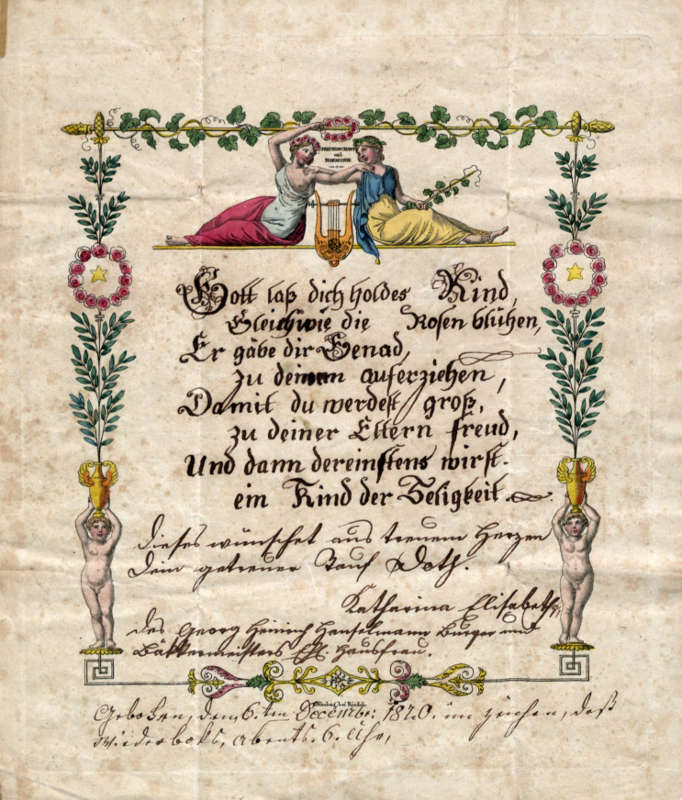 Gott laß dich holdes Kind,
Gleichwie die Rosen blühen,
Er gäbe dir Genad,
zu deinem auferziehen,
Damit du werdest groß,
zu deiner Eltern freud,
Und dann dereinstens wirst
ein Kind der Seligkeit.
Dieses wünschet aus treuem Herzen
Dein getreuer Tauf Doth.
Katharina Elisabetha,
des Georg Heinrich Hanselmann Burger und
Bäkkermeisters Ehl. Hausfrau.
Gebohren, dem 6.ten December 1820. im zeichen, deß
Wiederboks, Abents. 6. Uhr,